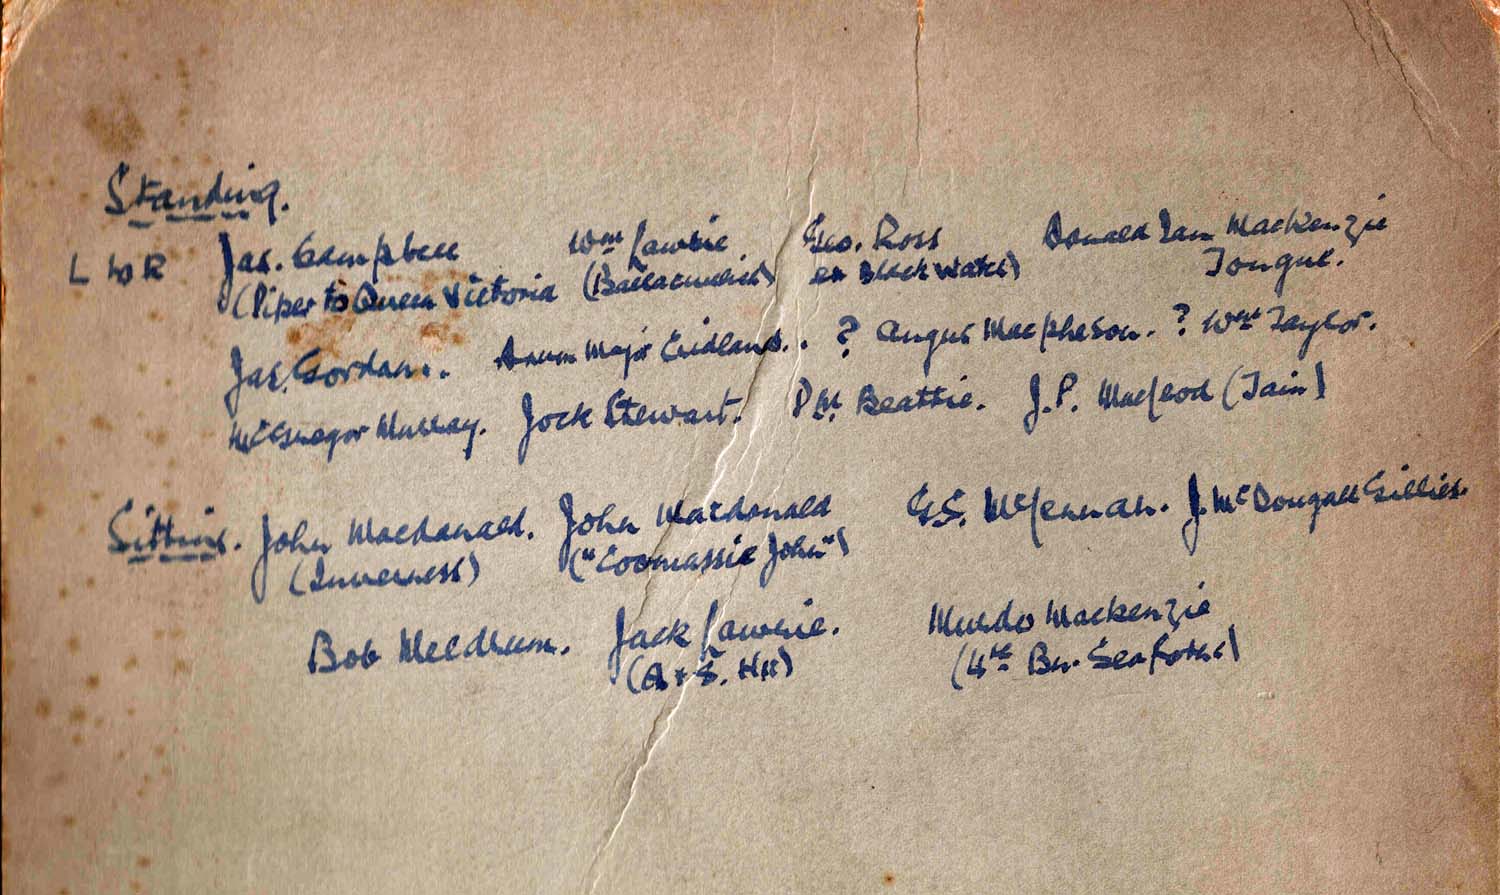 Standing.
L to R Jas. Campbell Wm Lawrie Geo. Ross Donald Ian MacKenzie
(Piper to Queen Victoria (Ballachulish) ex Black Watch) Tongue.
Jas. Gordon. Drum Major . ? Angus Macpheson. ? Wm Taylor.
McGregor Murray. Jock Stewart. P.M. Beattie. J.P. Macleod (Tain)
Sitting. John Macdonald. John Macdonald G.S. McLennan. J. McDougall Gillies.
(Inverness) ("Coomassie John")
Bob Meldrum. Jack Lawrie. Murdo Mackenzie
(A & S. HH) (4th Bn. Seaforths)